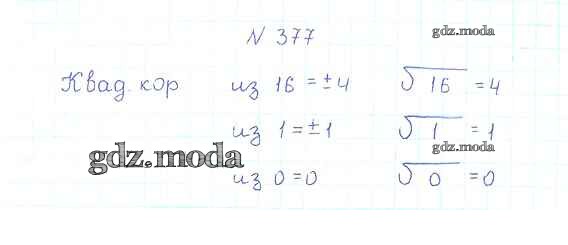 N 377
gdz.moda
Квад. кор из 16 = ± 4 √16 = 4
из 1 = ± 1 √1 = 1
gdz.moda gdz.moda
из 0 = 0 √0 = 0